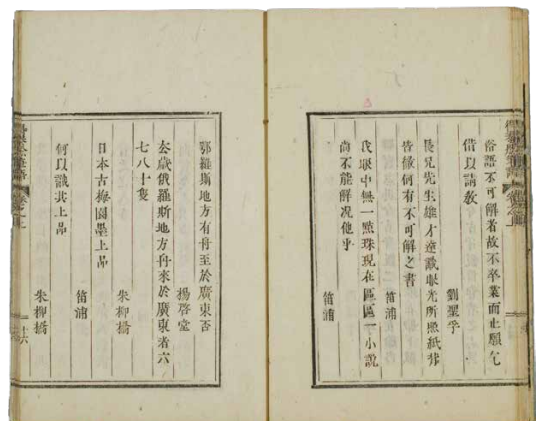 俗語不可解者故不卒業而止願允
借以請教
劉聖孚
長兄先生雄才遠識眼光所照紙背
皆徹何有不可解之書
笛浦
我眼中無一點珠現在區區一小說
尚不能解况他乎
鄂羅斯地方有舟至於廣東否
楊啓堂
去歲俄羅斯地方舟來於廣東者六
七八十隻
朱柳橋
日本古梅園墨上品
笛浦
何以識其上品
朱柳橋
十六